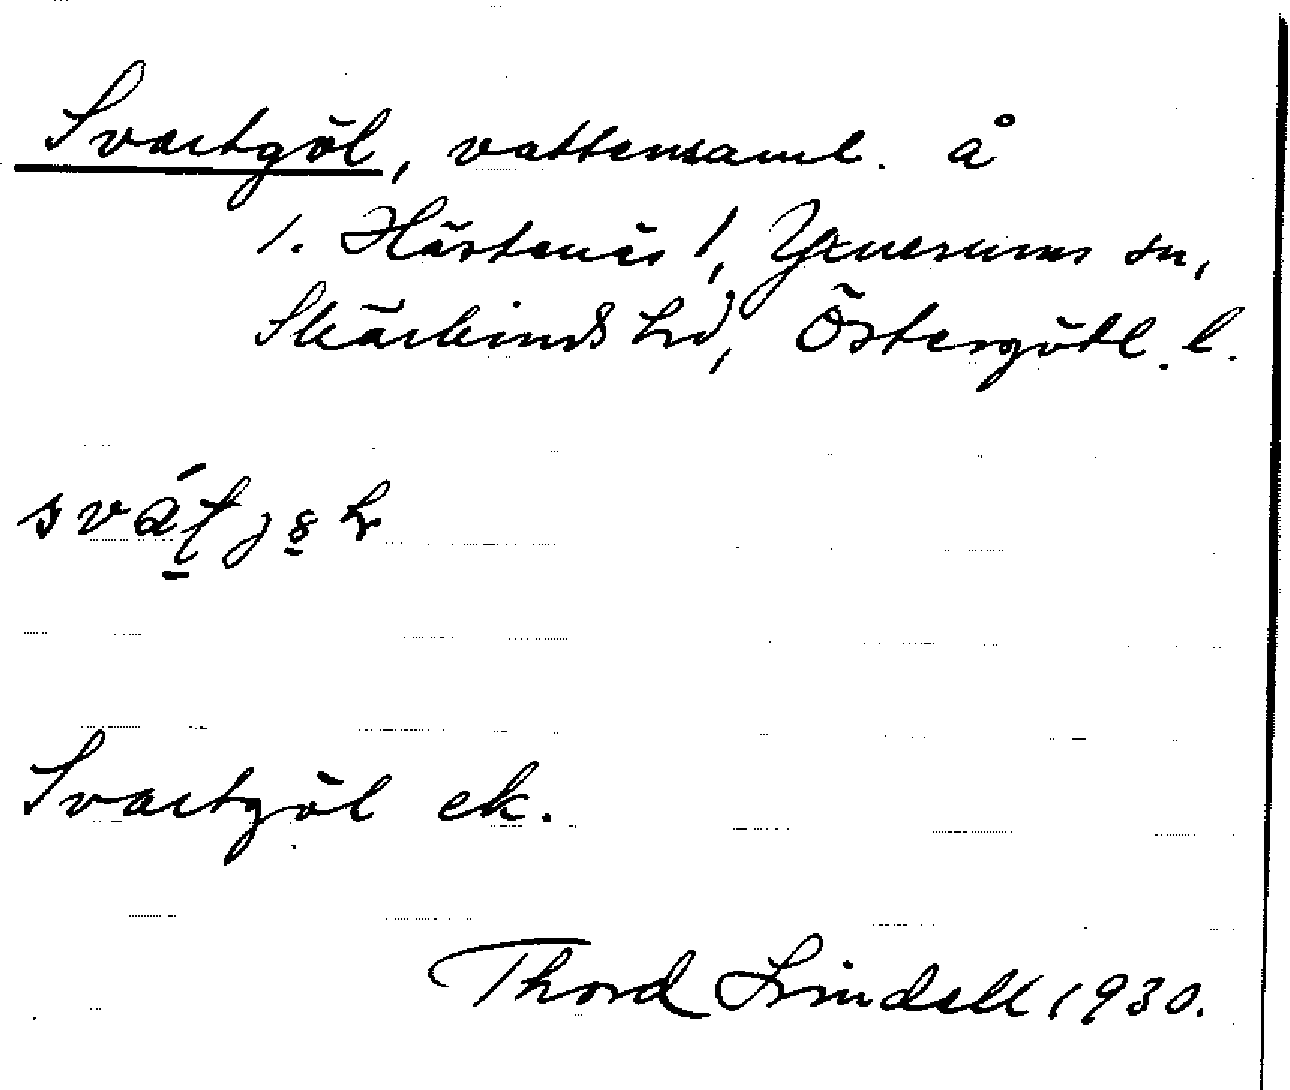 Svartgöl, vattensaml. å
1. Hästenäs 1, Yxnerums sn,
Skärkinds hd, Östergötl. l.
Svartgöl ek.
Thord Lindell 1930.